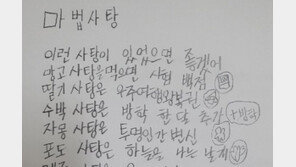 마법사탕
이런 사탕이 있었으면 좋겠어
망고 사탕을 먹으면 시험 백점
딸기 사탕은 우주여행 왕복권
수박 사탕은 방학 한 달 추가
자몽 사탕은 투명인간 변신
포도 사탕은 하늘을 나는 날개